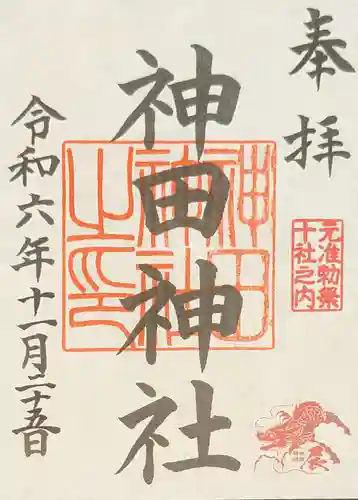 奉拝
神田神社
令和六年十一月二十五日
神田
神社
之印
元准勅祭
十社之内
辰